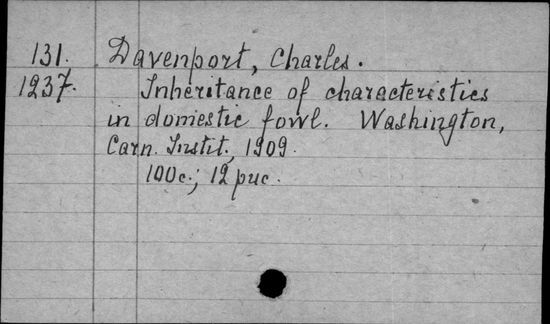 131. Davenport, Charles.
1237. Inheritance of characteristics
in domestic fowl. Washington,
Carn. Instit., 1909.
100c.; 12 рис.